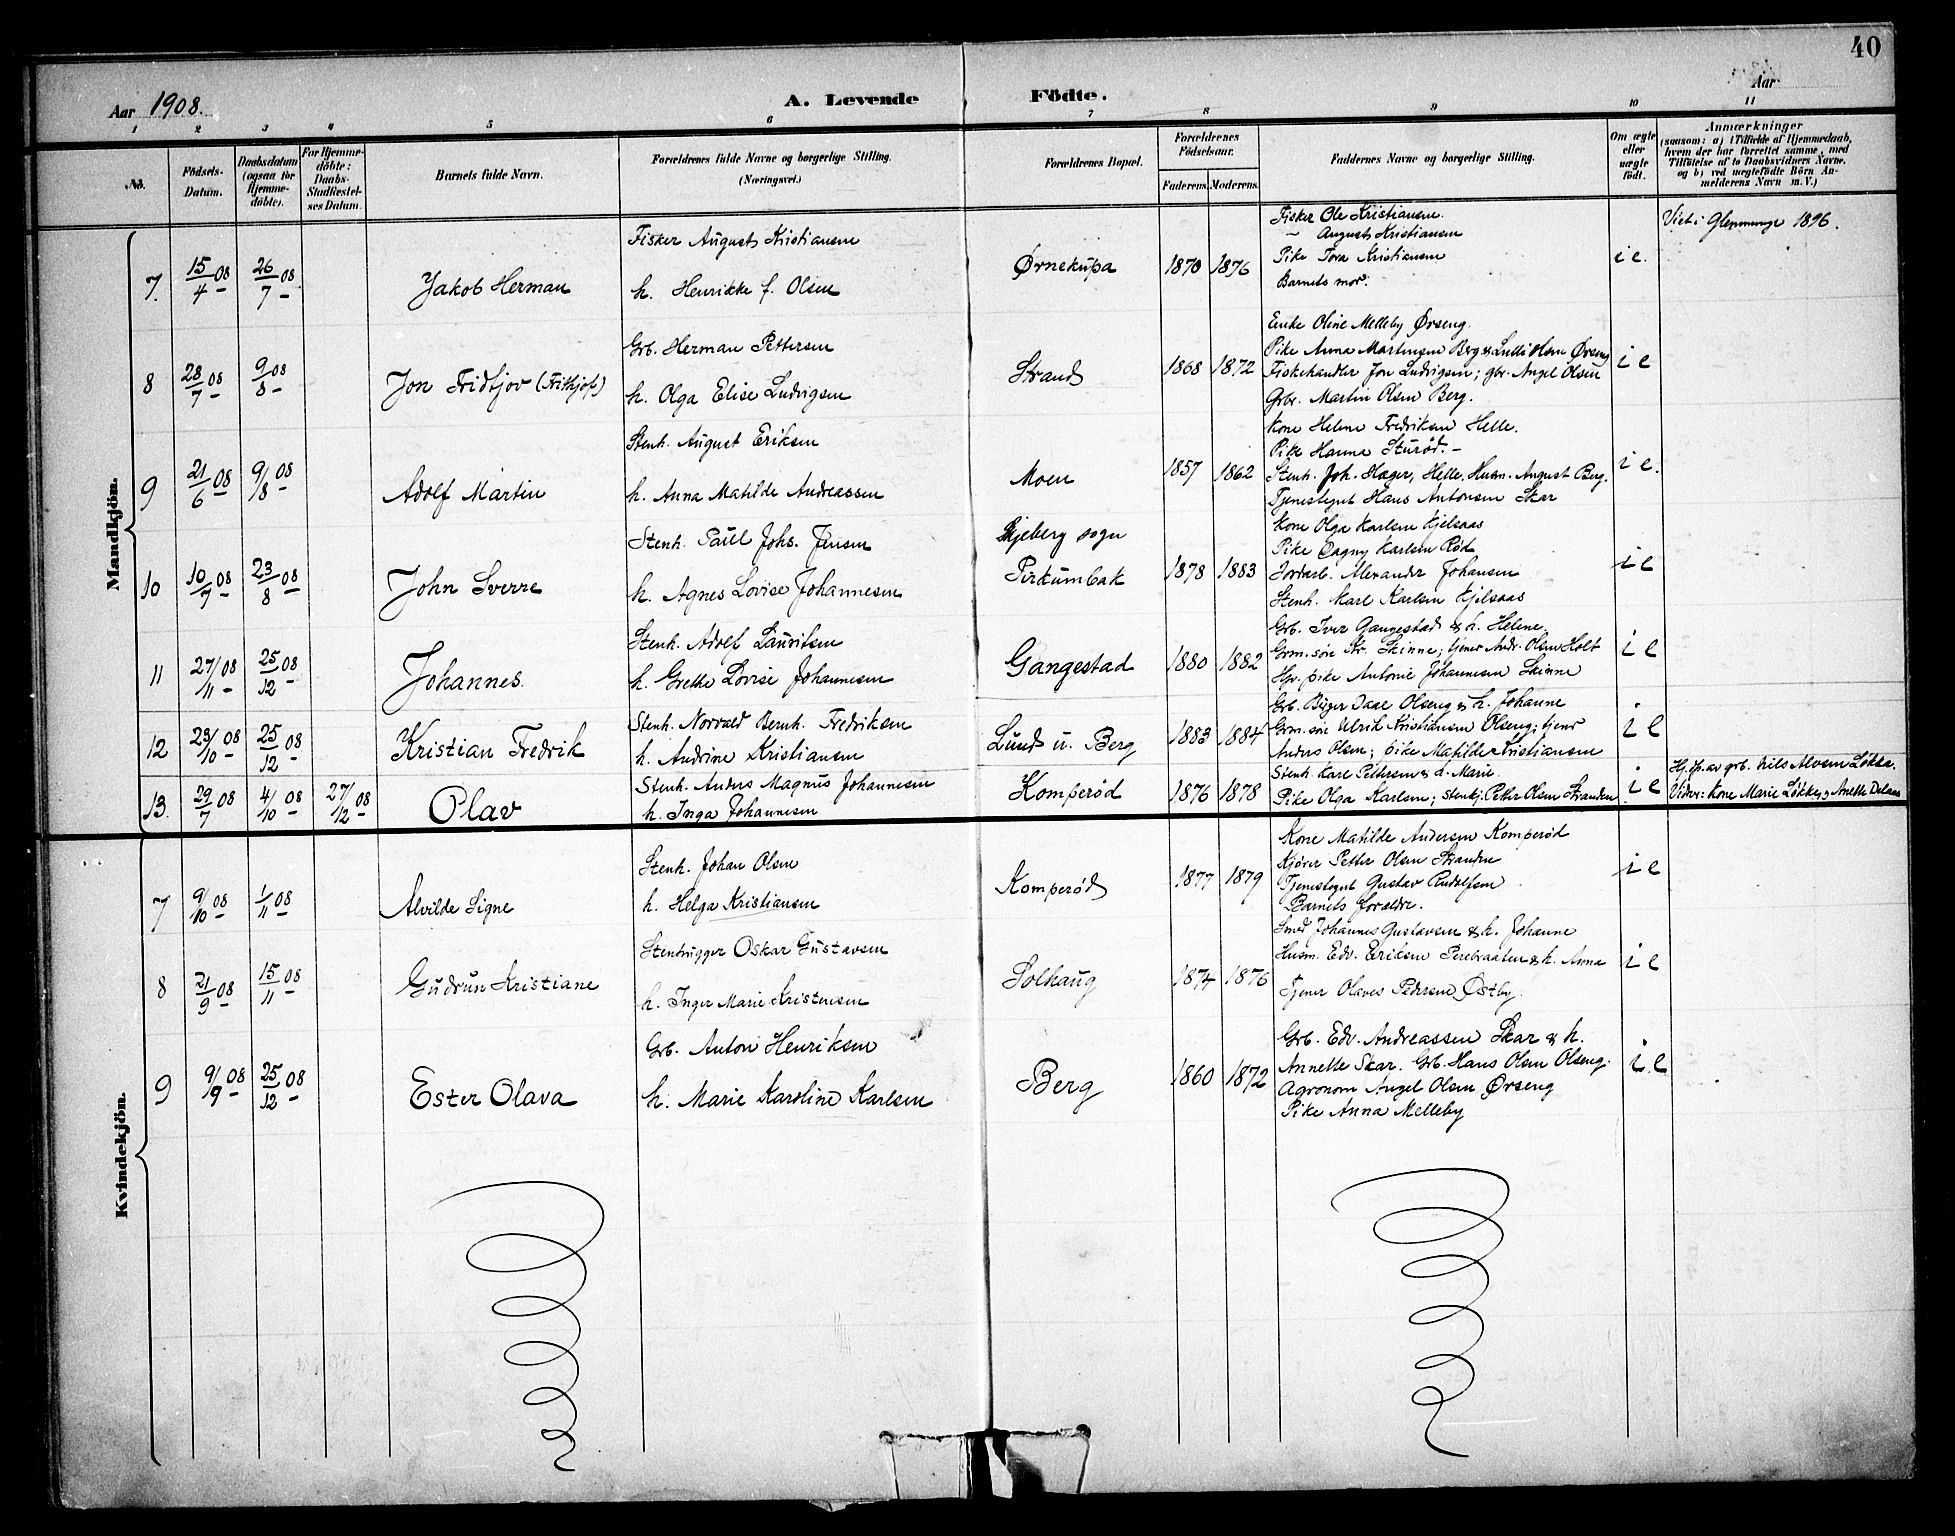 40
Aar 1908.
A. Levende Födte.
Aar
1 2 3 4 5 6 7 8 9 10 11
No.
Födsels-Datum.
Daabsdatum (ogsaa for Hjemme-döbte).
For Hjemme-döbte: Daabs-Stadfæstel-ses Datum.
Barnets fulde Navn.
Forældrenes fulde Navne og borgerlige Stilling.
(Næringsvei.)
Forældrenes Bopæl.
Forældrenes Födselsaar.
Faderens. Moderens.
Faddernes Navne og borgerlige Stilling.
Om ægte eller uægte født.
Anmærkninger
(saasom: a) i Tilfælde af Hjemmedaab, hvem der har forrettet samme, med Tilföielse af to Daabsvidners Navne. og b) ved uægtefödte Börn An-melderens Navn m. V.)
Mandkjön.
7. 15/4 08 26/7 08 Jakob Herman
Fisker August Kristiansen
h. Henrikke f. Olsen
Ørnekupa 1870 1876
Fisker Ole Kristiansen.
– August Kristiansen
Pike Tora Kristiansen
Barnets mor.
i e.
Viet i Glemminge 1896.
8 28/7 08 9/8 08 Jon Fridtjov (Frithjof)
Grb. Herman Pettersen
h. Olga Elise Ludvigsen
Strand 1868 1872
Enke Oline Melleby Ørseng.
Pike Anna Martinsen Berg & Lulli Olsen Ørseng
Fiskehandler Jon Ludvigsen; gbr. Angel Olsen
Grbr. Martin Olsen Berg.
i e
9 21/6 08 9/8 08 Adolf Martin
Stenh. August Eriksen
h. Anna Matilde Andreassen
Moen 1857 1862
Kone Helene Fredriksen Helle.
Pike Hanna Sturød. –
Stenh. Joh. Hæger, Helle. Husm. August Berg.
Tjenestegut Hans Antonsen Skar
i e.
10 10/7 08 23/8 08 John Sverre
Stenh. Paul Johs. Jensen
h. Agnes Lovise Johannesen
Skjeberg sogn
Pirkumbak 1878 1883
Kone Olga Karlsen Kjelsaas
Pike Dagny Karlsen Rød
Jordarb. Alexander Johansen
Stenh. Karl Karlsen Kjelsaas
i e
11 27/11 08 25/12 08 Johannes.
Stenh. Adolf Lauritsen
h. Grethe Lovise Johannesen
Gangestad 1880 1882
Grb. Iver Gangestad & h. Helene.
Grm. søn Kr. Skinne; tjener Andr. Olsen Holt
Hpr. pike Antonie Johannesen Skinne
i e
12 23/10 08 25/12 08 Kristian Fredrik
Stenh. Norvald Bernh. Fredriksen
h. Andrine Kristiansen
Lund u. Berg 1883 1884
Grb. Birger Daae Olseng & h. Johanne
Grm. søn Ulrik Kristiansen Olseng; tjener
Anders Olsen; pike Matilde Kristiansen
i e
13. 29/7 08 4/10 08 27/12 08 Olav
Stenh. Anders Magnus Johannesen
h. Inga Johannesen
Komperød 1876 1878
Stenh. Karl Pettersen & d. Marie.
Pike Olga Karlsen; stenhj. Petter Olsen Stranden
i e
Hj. dp. av grb. Nils Alvsen Løkke.
Vidner: Kone Marie Løkke og Anette
Kvindekjön.
7 9/10 08 1/11 08 Alvilde Signe
Stenh. Johan Olsen
h. Helga Kristiansen
Komperød 1877 1879
Kone Matilde Andersen Komperød
Kjører Petter Olsen Stranden
Tjenestegut Gustav Rudolfsen
Barnets forældre.
i e
8 21/9 08 15/11 08 Gudrun Kristiane
Stenhugger Oskar Gustavsen
h. Inger Marie Kristensen
Solhaug 1874 1876
Smed Johannes Gustavsen & h. Johanne
Husm. Edv. Eriksen Perebraaten & h. Anna
Tjener Olaves Pedersen Østby.
i e
9 9/9 08 25/12 08 Ester Olava
Grb. Anton Henriksen
h. Marie Karoline Karlsen
Berg 1860 1872
Grb. Edv. Andreassen Skar & h.
Annette Skar. Grb. Hans Olsen Olseng.
Agronom Angel Olsen Ørseng
Pike Anna Melleby
i e